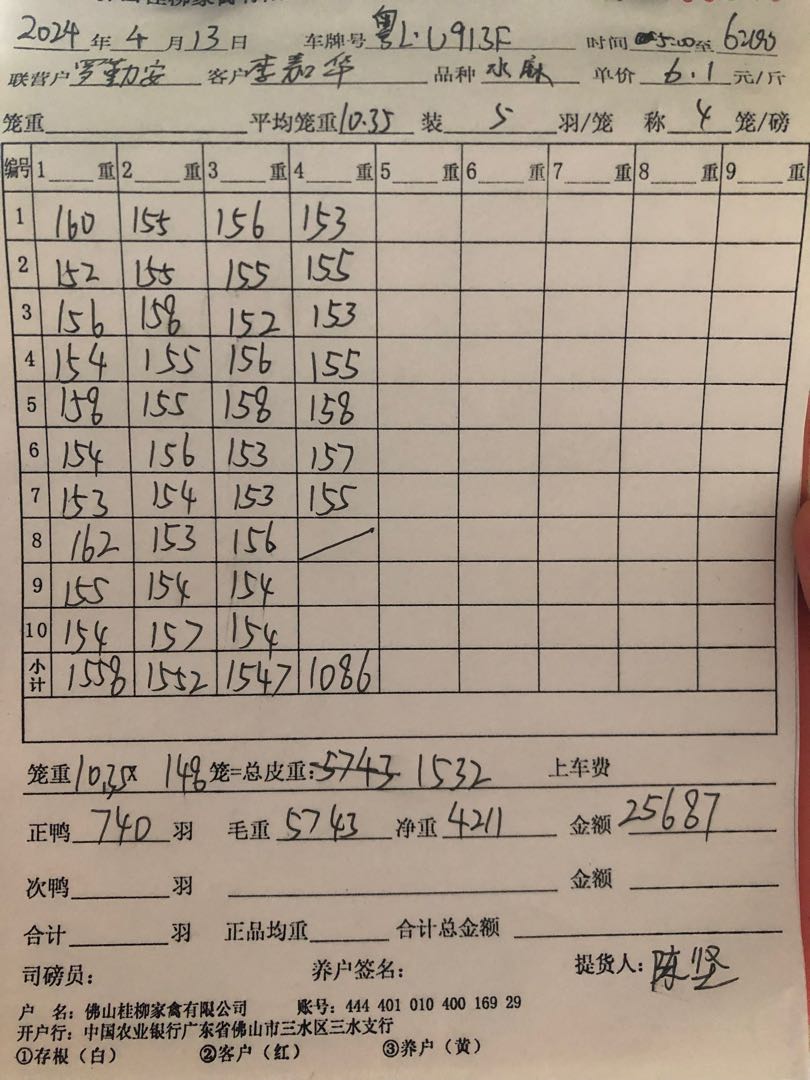 2024 年 4 月 13 日 车牌号 粤L·U913F 时间 至
联营户 罗勤安 客户 李嘉华 品种 水麻 单价 6.1 元/斤
笼重 平均笼重 10.35 装 5 羽/笼 称 4 笼/磅
编号 1 重 2 重 3 重 4 重 5 重 6 重 7 重 8 重 9 重
1 160 155 156 153
2 152 155 155 155
3 156 158 152 153
4 154 155 156 155
5 158 155 158 158
6 154 156 153 157
7 153 154 153 155
8 162 153 156
9 155 154 154
10 154 157 154
小计 1558 1552 1547 1086
笼重 10.35 x 148 笼=总皮重: 5743 1532 上车费
正鸭 740 羽 毛重 5743 净重 4211 金额 25687
次鸭 羽 金额
合计 羽 正品均重 合计总金额
司磅员: 养户签名: 提货人: 陈坚
户 名: 佛山桂柳家禽有限公司 账号: 444 401 010 400 169 29
开户行: 中国农业银行广东省佛山市三水区三水支行
①存根(白) ②客户(红) ③养户(黄)